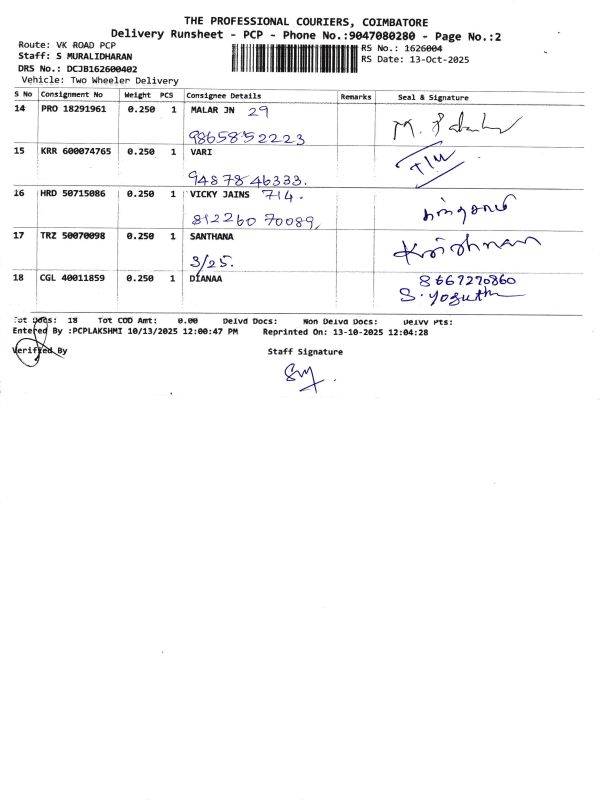 THE PROFESSIONAL COURIERS, COIMBATORE
Delivery Runsheet - PCP - Phone No.:9047080280 - Page No.:2
Route: VK ROAD PCP
Staff: S MURALIDHARAN
DRS No.: DCJB162600402
Vehicle: Two Wheeler Delivery
RS No.: 1626004
RS Date: 13-Oct-2025
S No Consignment No Weight PCS Consignee Details Remarks Seal & Signature
14 PRO 18291961 0.250 1 MALAR JN 29
98658 52223
15 KRR 600074765 0.250 1 VARI
94878 46333.
16 HRD 50715086 0.250 1 VICKY JAINS 714.
812260 70089,
17 TRZ 50070098 0.250 1 SANTHANA Krishnan
3/25.
18 CGL 40011859 0.250 1 DIANAA 8667270860
S. Yoguth
Tot Docs: 18 Tot COD Amt: 0.00 Delvd Docs: Non Delvd Docs: Delvy Pts:
Entered By :PCPLAKSHMI 10/13/2025 12:00:47 PM Reprinted On: 13-10-2025 12:04:28
Verified By Staff Signature